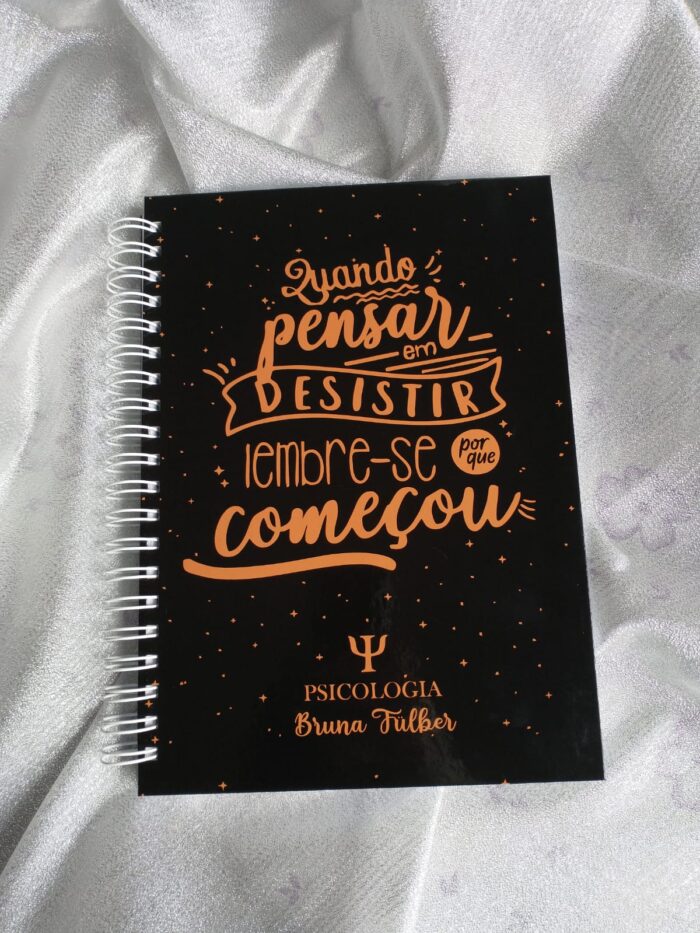 Quando
pensar
em
DESISTIR
lembre-se por que
começou
Ψ
PSICOLOGIA
Bruna Fülber